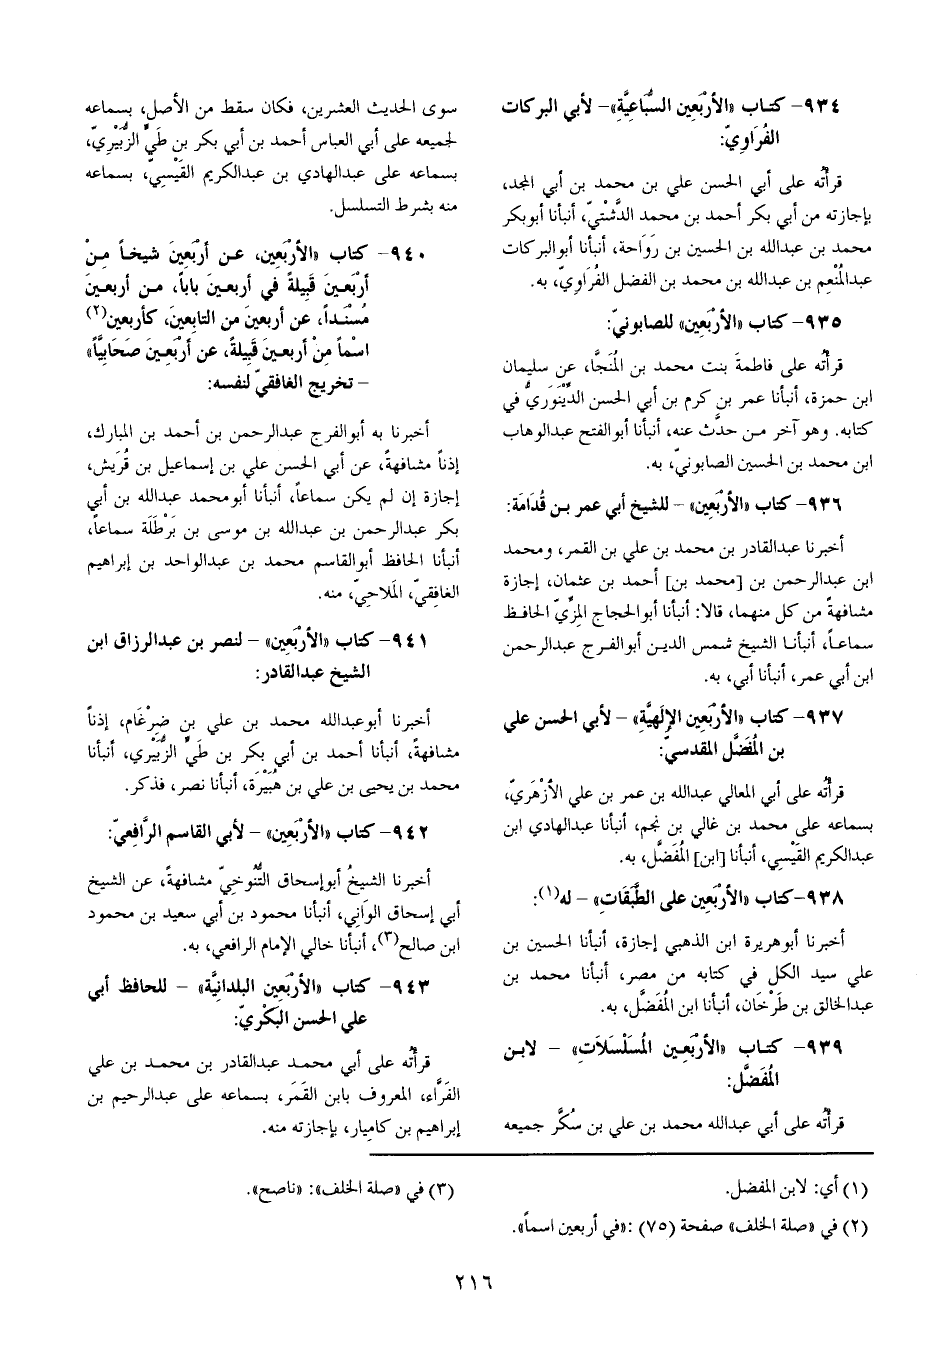 ٩٣٤- كتـاب «الأَرْبَعين السُّبَاعِيَّة»- لأبي البركات
الفُرَاوِيّ:
قرأتُه على أبي الحسن علي بن محمد بن أبي المجد،
بإجازته من أبي بكر أحمد بن محمد الدَّشْتيّ، أنبأنا أبوبكر
محمد بن عبدالله بن الحسين بن رَوَاحة، أنبأنا أبوالبركات
عبدالمُنْعِم بن عبدالله بن محمد بن الفضل الفُرَاوِيّ، به.
٩٣٥- كتاب «الأَرْبَعين» للصابونيّ:
قرأتُه على فاطمةَ بنت محمد بن المُنَجَّا، عن سليمان
ابن حمزة، أنبأنا عمر بن كرم بن أبي الحسن الدِّيْنَوَريُّ في
كتابه. وهو آخر مـن حدَّث عنه، أنبأنا أبوالفتح عبدالوهاب
ابن محمد بن الحسين الصابونيّ، به.
٩٣٦- كتاب «الأَرْبَعين» - للشيخ أبي عمر بـن قُدَامَة:
أخبرنا عبدالقادر بن محمد بن علي بن القمر، ومحمد
ابن عبدالرحمن بن [محمد بن] أحمد بن عثمان، إجازة
مشافهةً من كل منهما، قالا: أنبأنا أبوالحجاج المِزِّيّ الحافـظ
سماعـاً، أنبأنـا الشيخ شمس الديـن أبوالفـرج عبدالرحمن
ابن أبي عمر، أنبأنا أبي، به.
٩٣٧- كتاب «الأَرْبَعين الإِلَهيَّة» - لأبي الحسن علي
بن المُفَضَّل المقدسيّ:
قرأتُه على أبي المعالي عبدالله بن عمر بن علي الأزْهَريّ،
بسماعه على محمد بن غالي بن نجم، أنبأنا عبدالهادي ابن
عبدالكريم القَيْسِي، أنبأنا [ابن] المُفَضَّل، به.
٩٣٨-كتاب «الأَرْبَعين على الطَّبَقَات» - له(١):
أخبرنا أبوهريرة ابن الذهبي إجازة، أنبأنا الحسين بن
علي سيد الكل في كتابه من مصر، أنبأنا محمد بن
عبدالخالق بن طَرْخَان، أنبأنا ابن المُفَضَّل، به.
٩٣٩- كتـاب «الأَرْبَعـين المُسَلْسَلاَت» - لابـن
المُفَضَّل:
قرأتُه على أبي عبدالله محمد بن علي بن سُكَّر جميعه
سوى الحديث العشرين، فكان سقط من الأصل، بسماعه
لجميعه على أبي العباس أحمد بن أبي بكر بن طَيٍّ الزُّبَيْرِيّ،
بسماعه على عبدالهادي بن عبدالكريم القَيْسيّ، بسماعه
منه بشرط التسلسل.
٩٤٠- كتاب «الأَرْبَعين، عن أَرْبَعينَ شيخـاً مِـنْ
أرْبَعـينَ قَبِيلةً في أربعـين باباً، مـن أربعـين
مُسْنَـداً، عن أربعينَ من التابعينَ، كأربعين(٢)
اسْماً مِنْ أربعـين قَبِيلةً، عن أَرْبَعـينَ صَحَابيَّاً»
- تخريج الغافقيّ لنفسه:
أخبرنا به أبوالفرج عبدالرحمن بن أحمد بن المبارك،
إذناً مشافهةً، عن أبي الحسن علي بن إسماعيل بن قُرَيش،
إجازة إن لم يكن سماعاً، أنبأنا أبومحمد عبدالله بن أبي
بكر عبدالرحمن بن عبدالله بن موسى بن بَرْطَلَة سماعاً،
أنبأنا الحافظ أبوالقاسم محمد بن عبدالواحد بن إبراهيم
الغافِقيّ، المَلاحِيّ، منه.
٩٤١- كتاب «الأَرْبَعين» - لنصر بن عبدالرزاق ابن
الشيخ عبدالقادر:
أخبرنا أبوعبدالله محمد بن علي بن ضِرْغَام، إذناً
مشافهةً، أنبأنا أحمد بن أبي بكر بن طَيٍّ الزُّبَيْري، أنبأنا
محمد بن يحيى بن علي بن هُبَيْرَة، أنبأنا نصر، فذكر.
٩٤٢- كتاب «الأَرْبَعين» - لأبي القاسم الرَّافِعيّ:
أخبرنا الشيخُ أبوإسحاق التَّنُوخيّ مشافهةً، عن الشيخ
أبي إسحاق الوَاني، أنبأنا محمود بن أبي سعيد بن محمود
ابن صالح(٣)، أنبأنا خالي الإمام الرافعي، به.
٩٤٣- كتاب «الأَرْبَعين البلدانيَّة» - للحافظ أبي
علي الحسن البَكْريّ:
قرأتُه على أبي محمـد عبدالقادر بن محمـد بن علي
الفَرَّاء، المعروف بابن القَمَر، بسماعه على عبدالرحيم بن
إبراهيم بن كاميار، بإجازته منه.
(١) أي: لابن المفضل.
(٢) في «صلة الخلف» صفحة (٧٥) :«في أربعين اسماً».
(٣) في «صلة الخلف»: «ناصح».
٢١٦